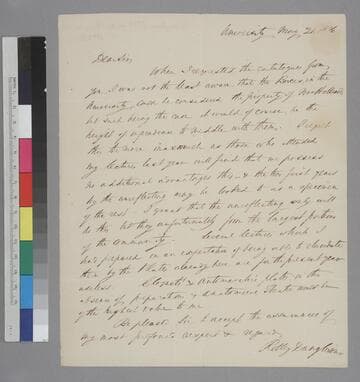 University May 21
Dear Sir,
When I requested the catalogue from
you I was not the least aware that the Books in the
University could be considered the property of
but such being the case it would of course be the
height of rudeness to meddle with them. I regret
this the more in as much as those who attended
my lectures last year will find that we possess
no additional advantages this & the two first years
by the unreflecting may be looked to as a specimen
of the rest. I grant that the unreflecting only will
do this but they unfortunately form the largest portion
of the community. Several lectures which I
had prepared in an expectation of being able to elucidate
them by the Plates already here are for the present year
useless. & plates in the
absence of preparations & anatomical should be
of the highest value to me.
Be pleased Sir to accept the assurances of
my most profound respect & regard
Robley Dunglison